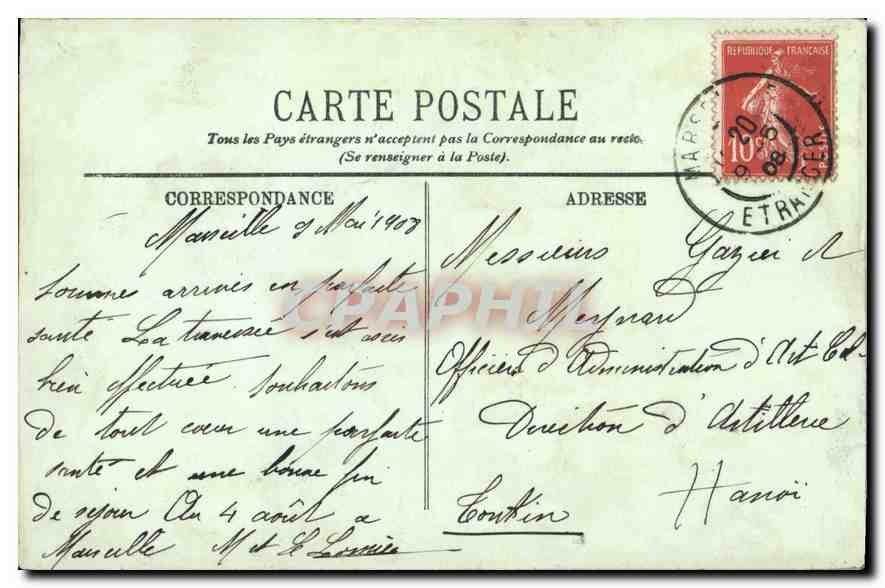 CARTE POSTALE
Tous les Pays étrangers n'acceptent pas la Correspondance au recto.
(Se renseigner à la Poste).
REPUBLIQUE FRANÇAISE
10
20
9 5
08
ETRANGER
CORRESPONDANCE
Marseille 9 Mai 1908
Sommes arrivés en parfaite
santé La traversée s'est assez
bien effectuée. souhaitons
de tout cœur une parfaite
santé et une bonne fin
de séjour Au 4 août a
Marseille M et
ADRESSE
Messieurs
Meynard
Officiers d'Administration d'Art Col
Direction d'Artillerie
Hanoï
Tonkin
CPAPHIL